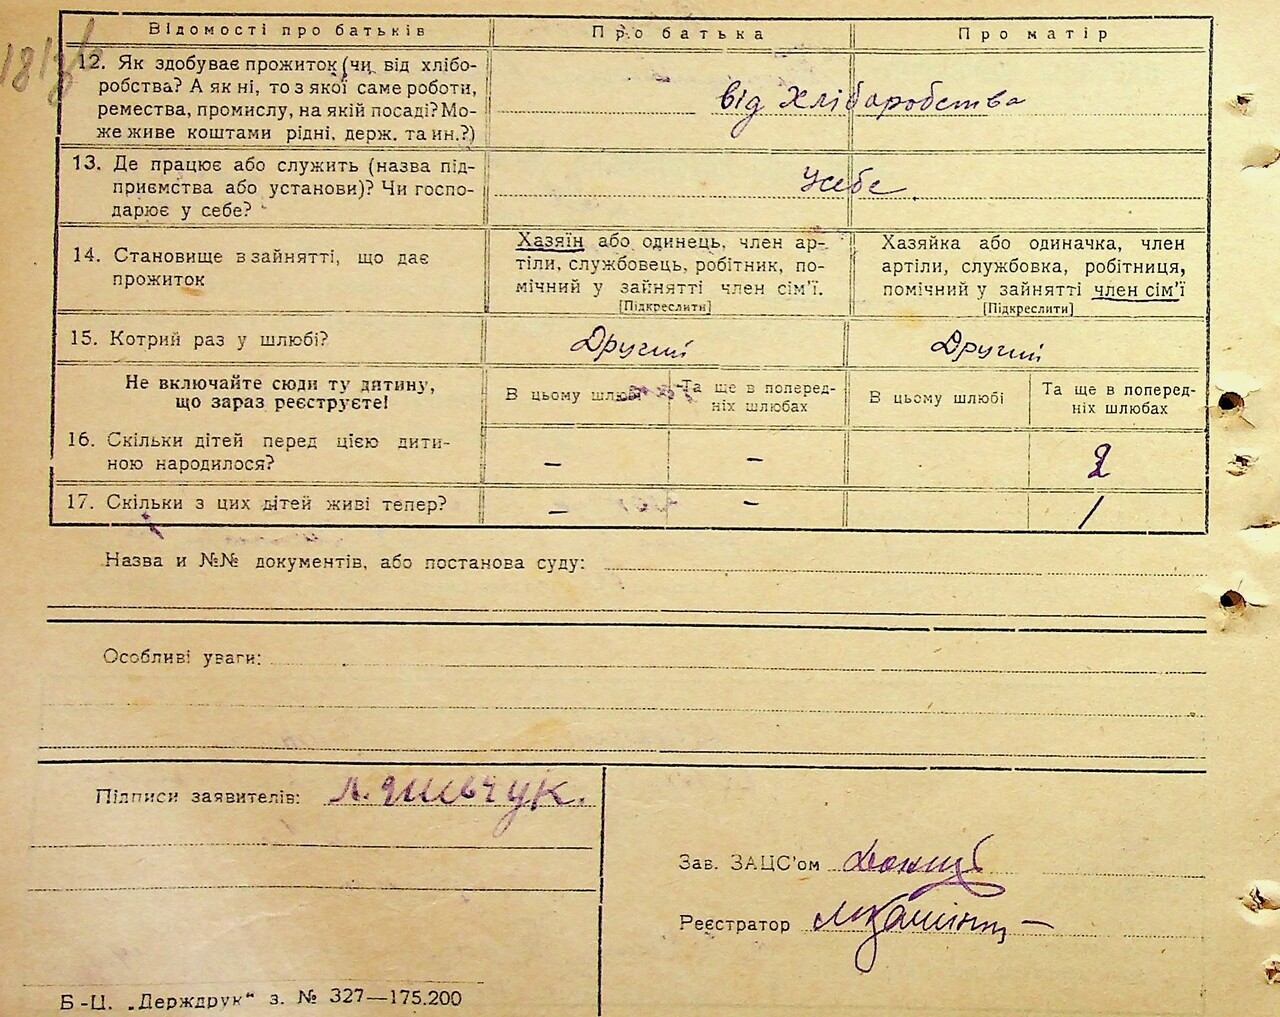 Відомості про батьків Про батька Про матір
12. Як здобуває прожиток (чи від хлібо-
робства? А як ні, то з якої саме роботи,
ремества, промислу, на якій посаді? Мо-
же живе коштами рідні, держ. та ин.?)
від хлібаробства
13. Де працює або служить (назва під-
приємства або установи)? Чи госпо-
дарює у себе?
Усебе
14. Становище в зайнятті, що дає
прожиток
Хазяїн або одинець, член ар-
тіли, службовець, робітник, по-
мічний у зайнятті член сім'ї.
[Підкреслити]
Хазяйка або одиначка, член
артіли, службовка, робітниця,
помічний у зайнятті член сім'ї
[Підкреслити]
15. Котрий раз у шлюбі? Другий Другий
Не включайте сюди ту дитину,
що зараз реєструєте!
В цьому шлюбі
Та ще в поперед-
ніх шлюбах
В цьому шлюбі
Та ще в поперед-
ніх шлюбах
16. Скільки дітей перед цією дити-
ною народилося?
– – 2
17. Скільки з цих дітей живі тепер? – – 1
Назва и №№ документів, або постанова суду:
Особливі уваги:
Підписи заявителів:
Зав. ЗАЦС'ом
Реєстратор
Б-Ц. „Держдрук“ з. № 327—175.200